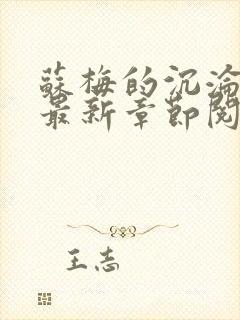 蘇梅的沉淪
最新章節閱
王志